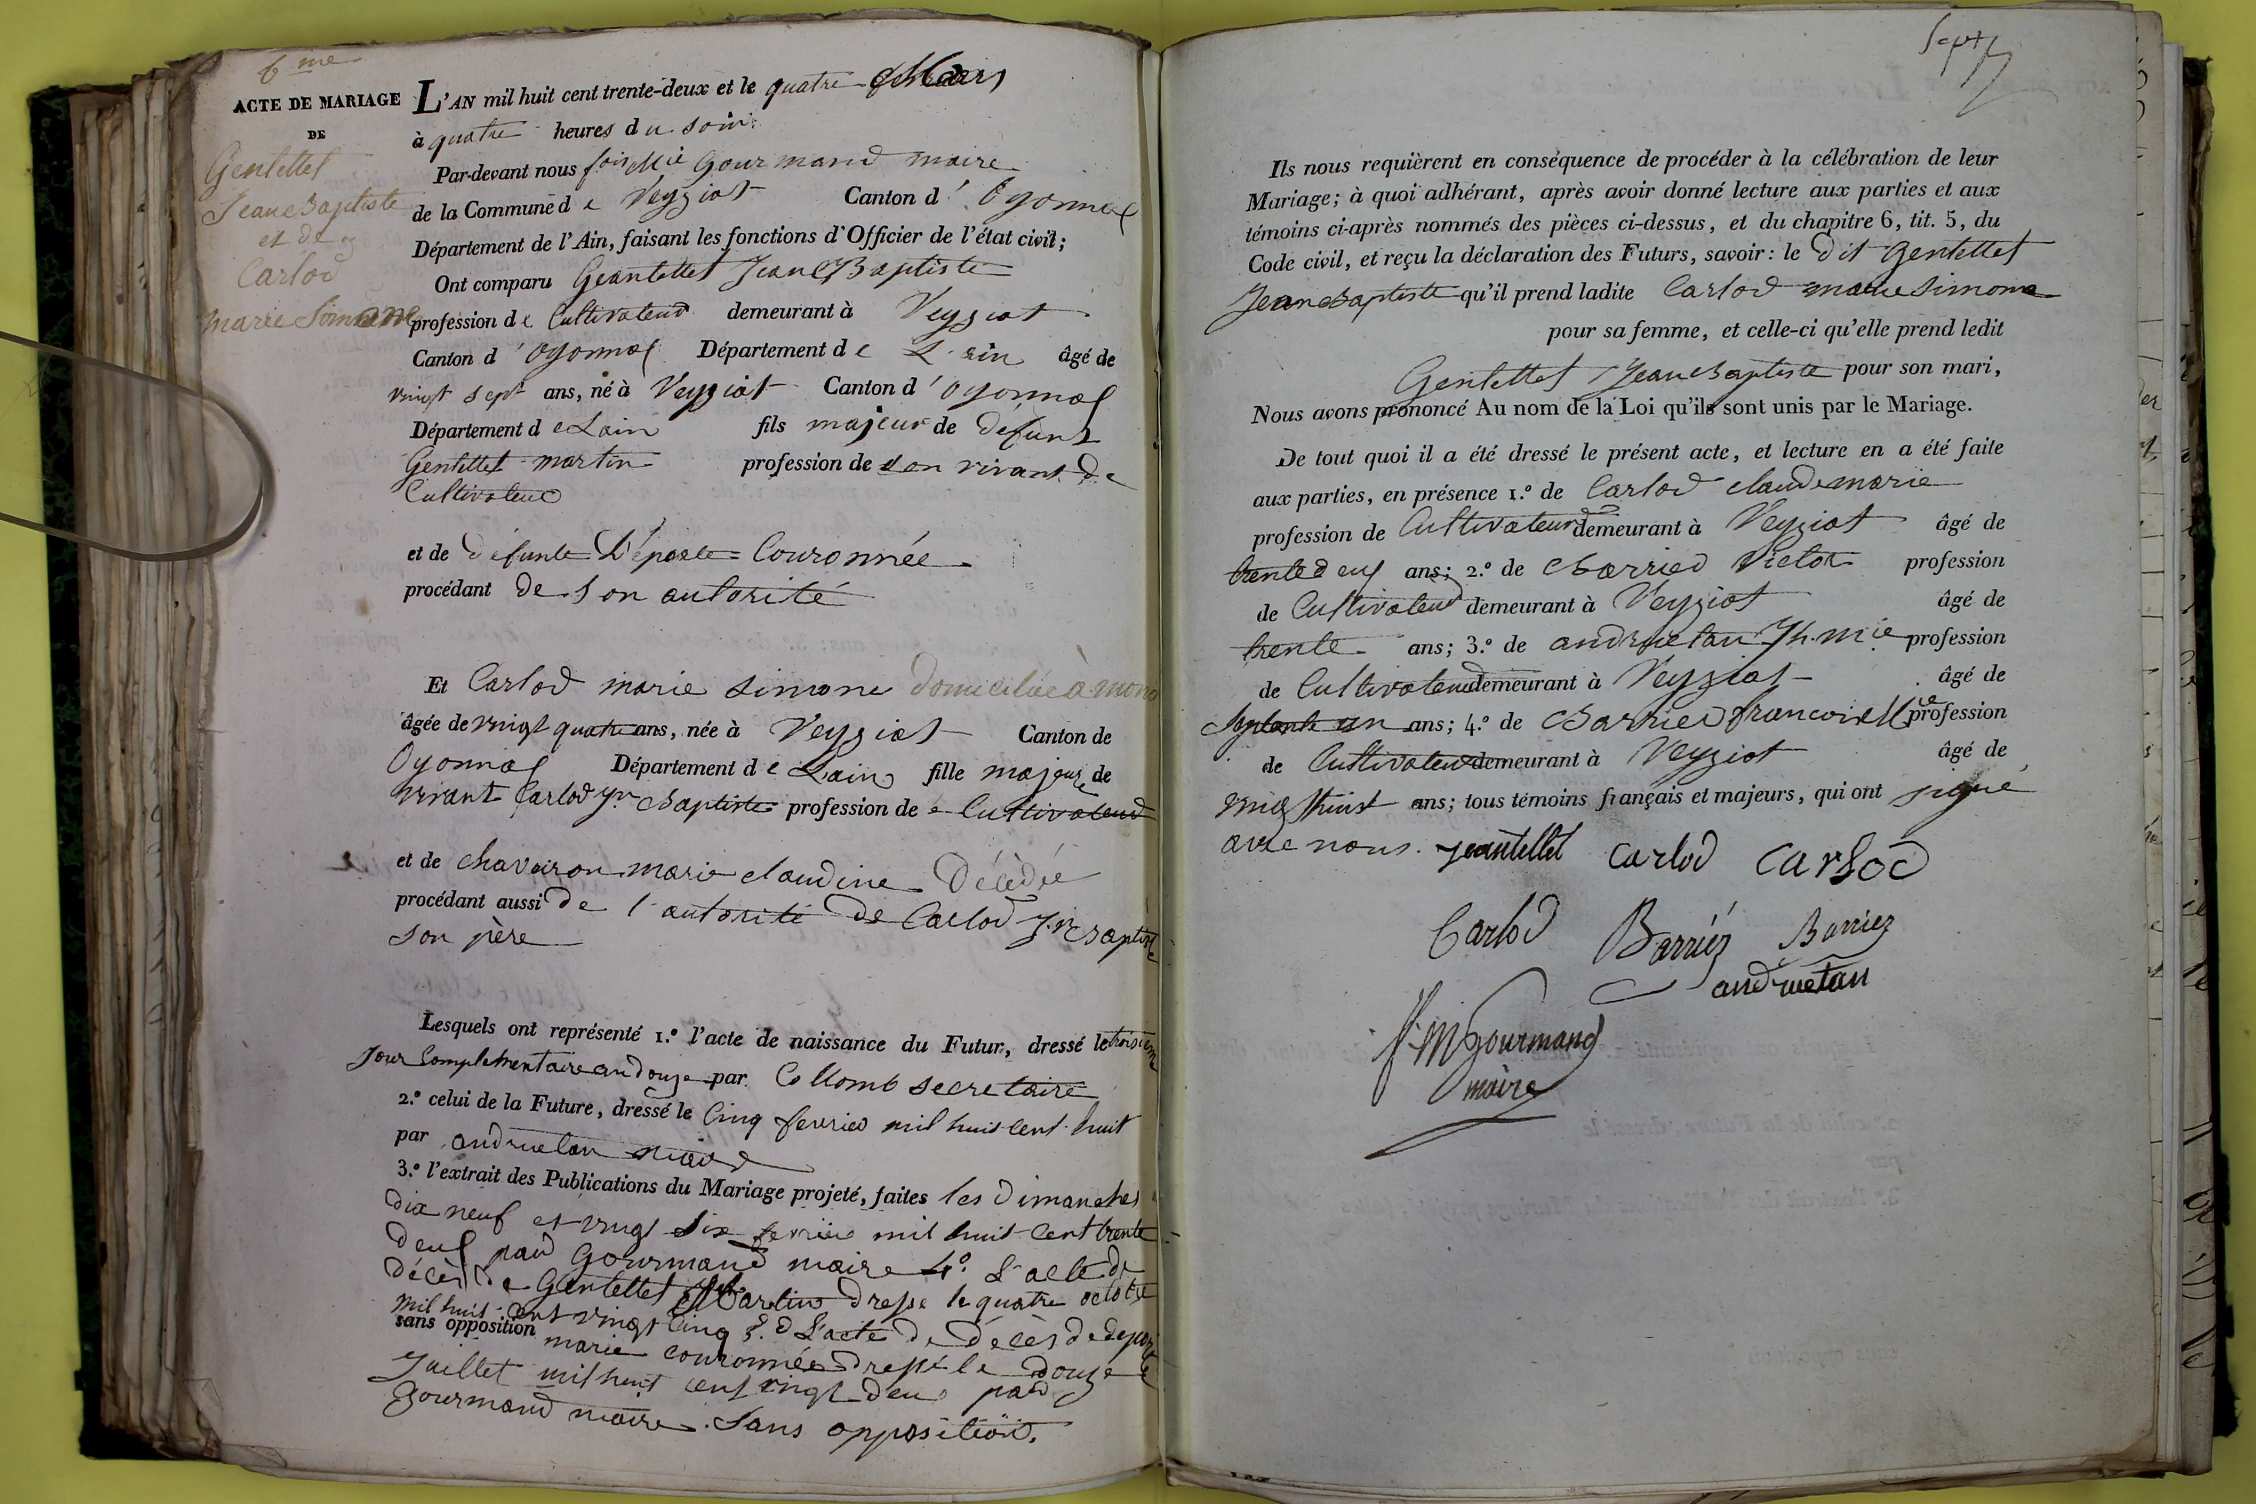 6me
ACTE DE MARIAGE
DE
Gentellet
Jean Baptiste
et de
Carlod
marie Simone
L'AN mil huit cent trente-deux et le quatre Mars
à quatre heures du soir.
Par-devant nous fois Mie Gourmand maire
de la Commune de Veyziat Canton d'Oyonnax
Département de l'Ain, faisant les fonctions d'Officier de l'état civil;
Ont comparu Geantellet Jean Baptiste
profession de Cultivateur demeurant à Veyziat
Canton d'Oyonnax Département de L'ain âgé de
vingt sept ans, né à Veyziat Canton d'oyonnax
Département de Lain fils majeur de défunt
Gentellet martin profession de son vivant de
Cultivateur
et de défunte Déporte Couronnée
procédant de son autorité
Et Carlod marie simone domiciliée à
âgée de vingt quatre ans, née à Veyziat Canton de
Oyonnax Département de Lain fille majeure de
vivant Carlod Jn Baptiste profession de Cultivateur
et de chavairon marie claudine Décédée
procédant aussi de l'autorité de Carlod J. Baptiste
son père
Lesquels ont représenté 1.º l'acte de naissance du Futur, dressé le troisieme
Jour Complementaire an douze par Collomb secretaire
2.º celui de la Future, dressé le Cinq fevrier mil huit cent huit
par andruetan maire
3.º l'extrait des Publications du Mariage projeté, faites les dimanches
dix neuf et vingt six fevrier mil huit cent trente
deux par Gourmand maire 4.º L'acte de
décès de Gentellet Martin dressé le quatre octobre
mil huit cent vingt cinq 5.º L'acte de décès de deporte
sans opposition marie couronnée dressé le douze
Juillet mil huit cent vingt deux par
Gourmand maire. Sans opposition.
Sept
Ils nous requièrent en conséquence de procéder à la célébration de leur
Mariage; à quoi adhérant, après avoir donné lecture aux parties et aux
témoins ci-après nommés des pièces ci-dessus, et du chapitre 6, tit. 5, du
Code civil, et reçu la déclaration des Futurs, savoir: le dit Gentellet
Jean Baptiste qu'il prend ladite Carlod marie Simone
pour sa femme, et celle-ci qu'elle prend ledit
Gentellet Jean Baptiste pour son mari,
Nous avons prononcé Au nom de la Loi qu'ils sont unis par le Mariage.
De tout quoi il a été dressé le présent acte, et lecture en a été faite
aux parties, en présence 1.º de Carlod claude marie
profession de Cultivateur demeurant à Veyziat âgé de
trente deux ans; 2.º de Barried Victor profession
de Cultivateur demeurant à Veyziat âgé de
trente ans; 3.º de andruetan Jh. mie profession
de Cultivateur demeurant à Veyziat âgé de
Septante un ans; 4.º de Barried francois Mie profession
de Cultivateur demeurant à Veyziat âgé de
vingt huit ans; tous témoins français et majeurs, qui ont signé
avec nous. Jeantellet Carlod Carlod
Carlod Barriéz Barriez
andruetan
f. M Gourmand
maire